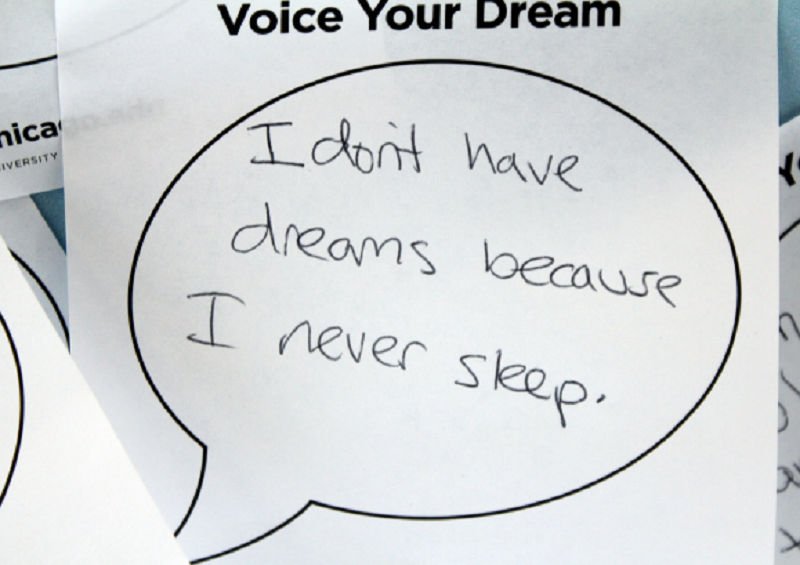 Voice Your Dream
I don't have
dreams because
I never sleep.